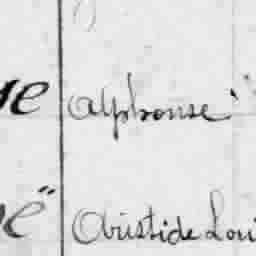 Alphonse
Aristide Loui